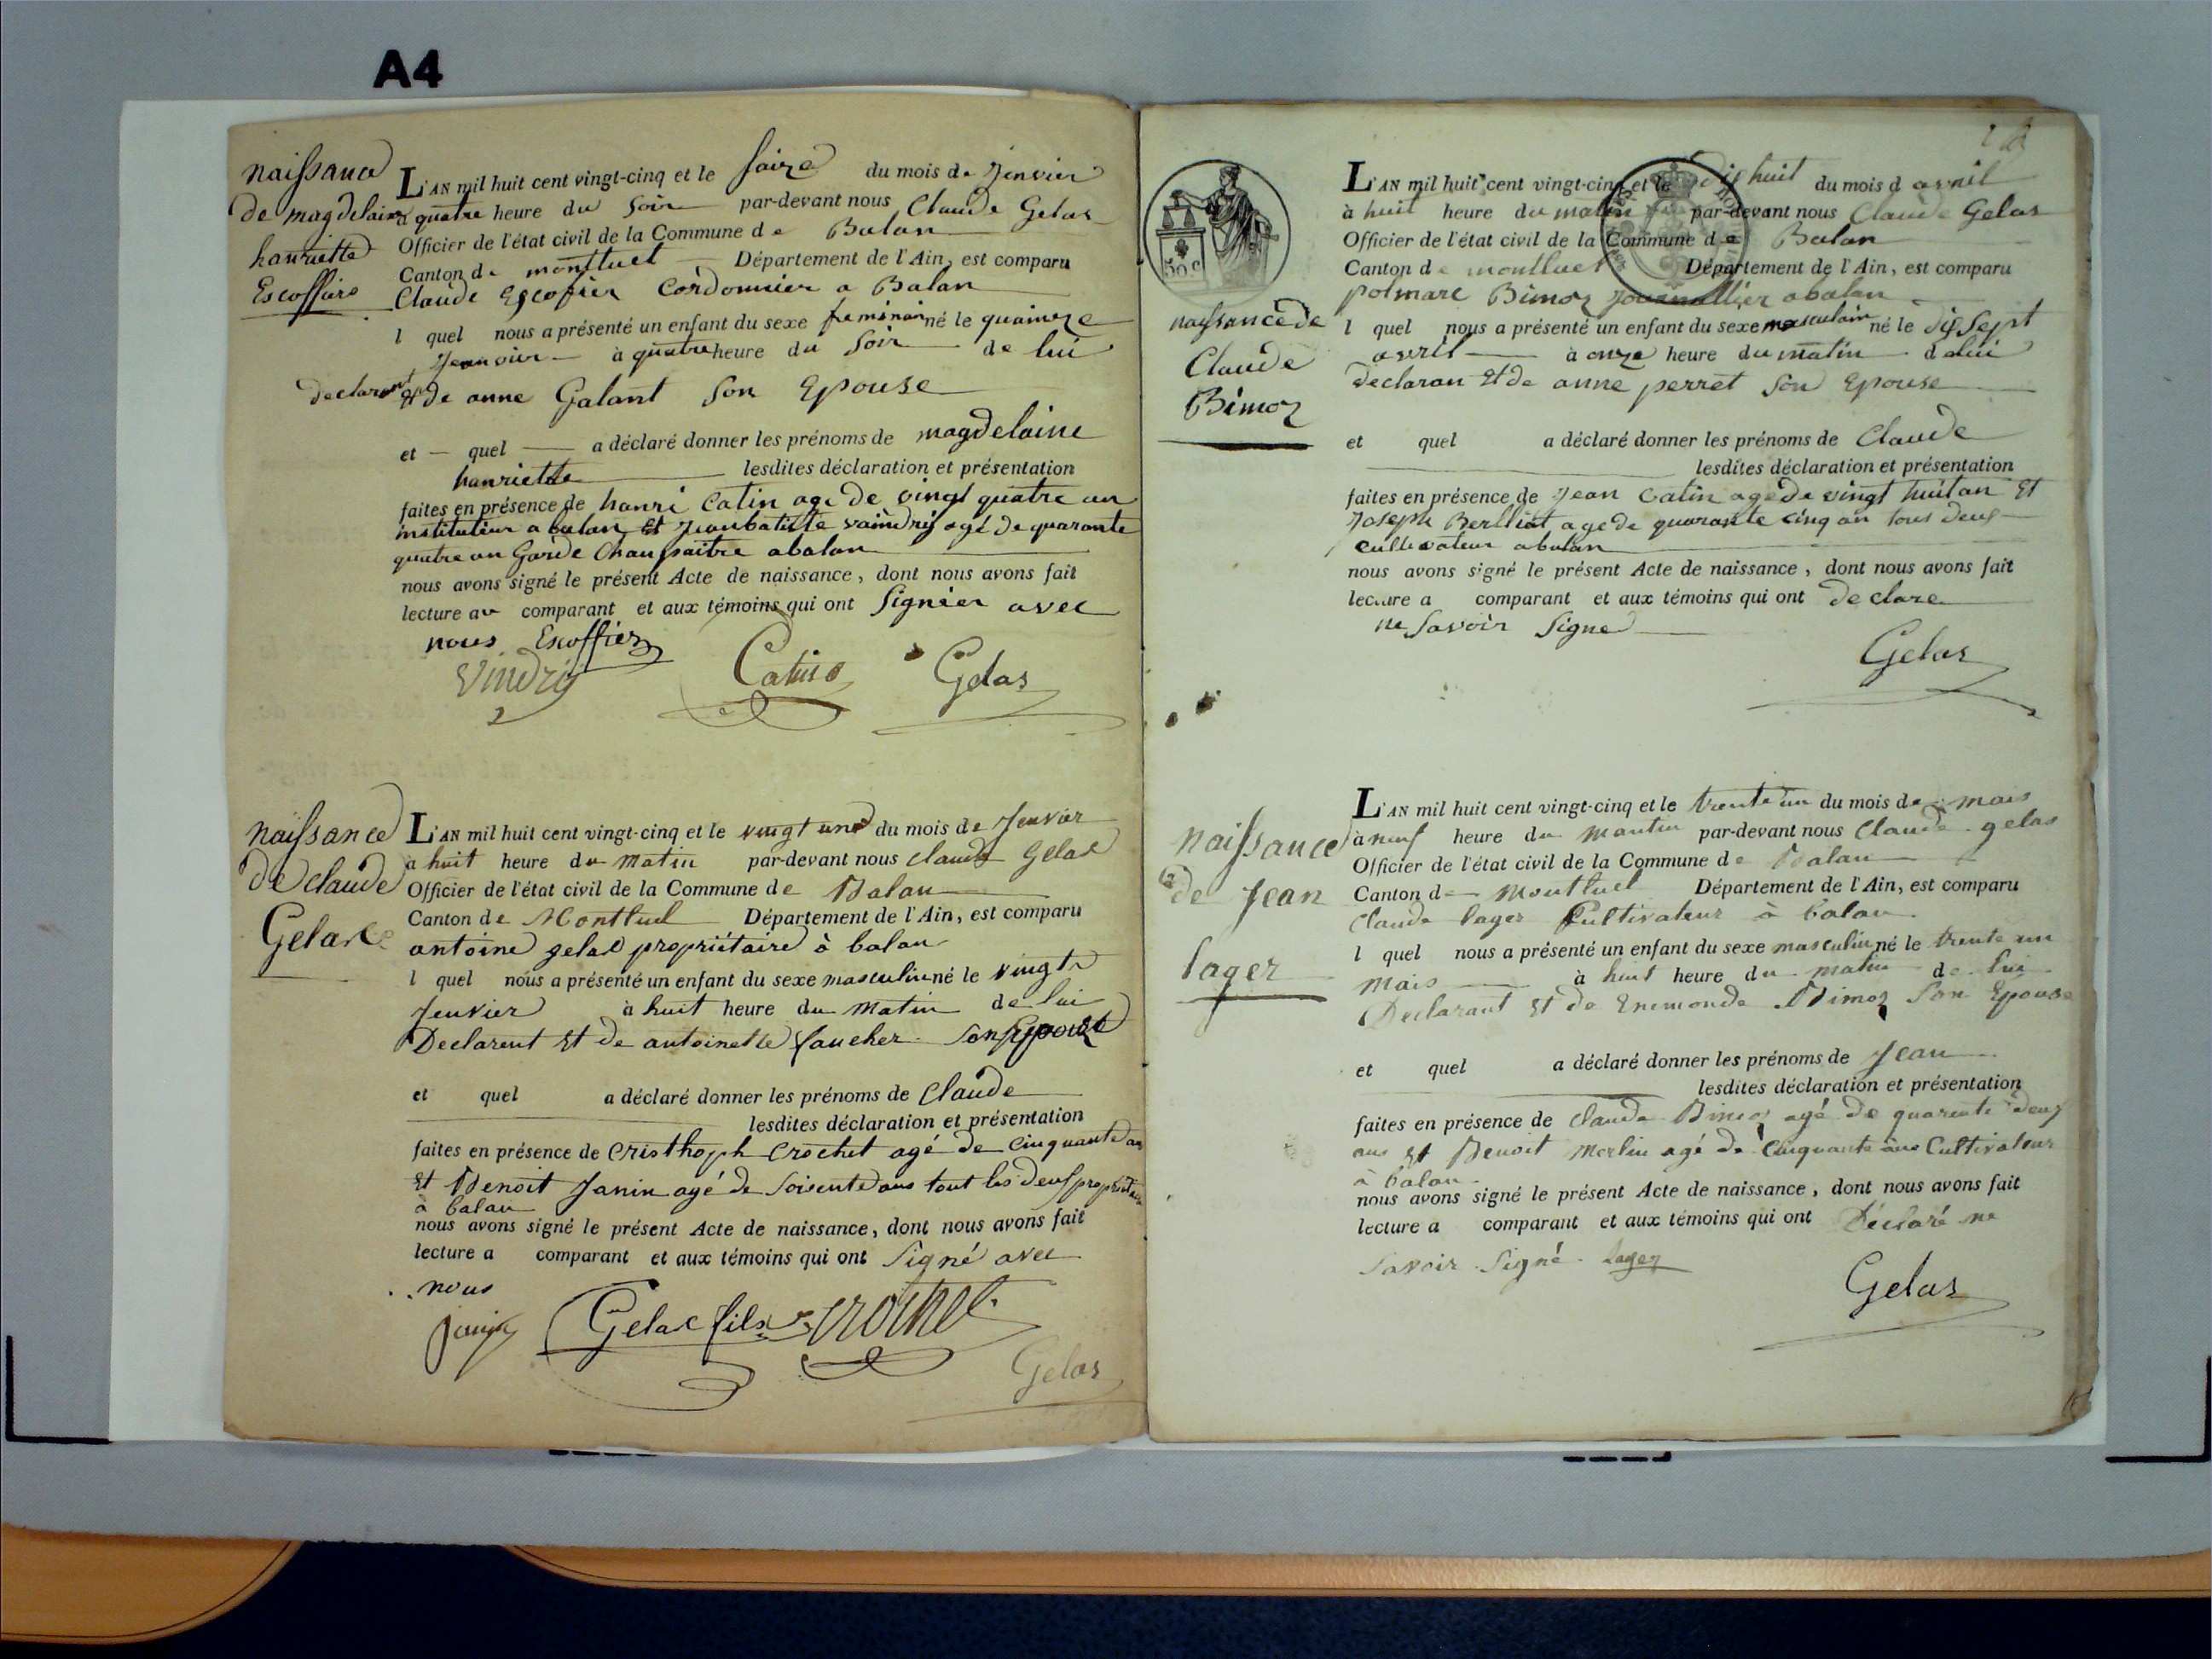 A4
naissance
de magdelaine
hanriette
Escoffier
L'AN mil huit cent vingt-cinq et le saize du mois de Jenvier
a quatre heure du soir par-devant nous Claude Gelas
Officier de l'état civil de la Commune de Balan
Canton de montluel Département de l'Ain, est comparu
Claude Escofier Cordonnier a Balan
l quel nous a présenté un enfant du sexe feminain né le quainze
Jeanvier à quatre heure du soir de lui
declarant et de anne Galant son Epouse
et quel a déclaré donner les prénoms de magdelaine
hanriette lesdites déclaration et présentation
faites en présence de hanri Catin age de vingt quatre an
instituteur a balan et Jeanbatiste vaindrij agé de quarante
quatre an Garde Chanpaitre abalan
nous avons signé le présent Acte de naissance, dont nous avons fait
lecture au comparant et aux témoins qui ont Signéer avec
nous Escoffier
Vindrij Catin Gelas
naissance
de claude
Gelas
L'AN mil huit cent vingt-cinq et le vingt une du mois de Jenvier
a huit heure du matin par-devant nous claude Gelas
Officier de l'état civil de la Commune de Balan
Canton de Montluel Département de l'Ain, est comparu
antoine gelas propriétaire à balan
l quel nous a présenté un enfant du sexe masculin né le vingt
Jenvier à huit heure du matin de lui
Declarent et de antoinette faucher son Epouse
et quel a déclaré donner les prénoms de Claude
lesdites déclaration et présentation
faites en présence de Cristhoph Crochet agé de Cinquante an
et Benoit Janin agé de soisente ans tout les deux propriétaire
à balan
nous avons signé le présent Acte de naissance, dont nous avons fait
lecture a comparant et aux témoins qui ont Signé avec
nous
Janin Gelas fils Crochet
Gelas
50 c
naissance de
Claude
Bimoz
L'AN mil huit cent vingt-cinq et le dix huit du mois d avril
à huit heure du matin par-devant nous Claude Gelas
Officier de l'état civil de la Commune de Balan
Canton de montluel Département de l'Ain, est comparu
polmarc Bimoz Journallier abalan
l quel nous a présenté un enfant du sexe masculain né le dix sept
avril à onze heure du matin de lui
declaran et de anne perret son Epouse
et quel a déclaré donner les prénoms de Claude
lesdites déclaration et présentation
faites en présence de Jean Catin agé de vingt huit an et
Joseph Berlliat age de quarante cinq an tous deux
cultivateur abalan
nous avons signé le présent Acte de naissance, dont nous avons fait
lecture a comparant et aux témoins qui ont declare
ne savoir signe
Gelas
naissance
de Jean
lager
L'AN mil huit cent vingt-cinq et le trente un du mois de mais
à neuf heure du mantin par-devant nous Claude gelas
Officier de l'état civil de la Commune de Balan
Canton de Montluel Département de l'Ain, est comparu
Claude lager Cultivateur à balan
l quel nous a présenté un enfant du sexe masculin né le trente un
mais à huit heure du matin de lui
Declarant et de Enemonde Bimoz son Epouse
et quel a déclaré donner les prénoms de Jean
lesdites déclaration et présentation
faites en présence de Claude Bimoz agé de quarente deux
ans et Benoit Merlin agé de Cinquante ans Cultivateur
à balan
nous avons signé le présent Acte de naissance, dont nous avons fait
lecture a comparant et aux témoins qui ont Déclaré ne
savoir signé lager
Gelas